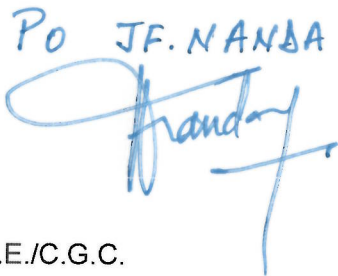 Po JF. NANDA
.E./C.G.C.